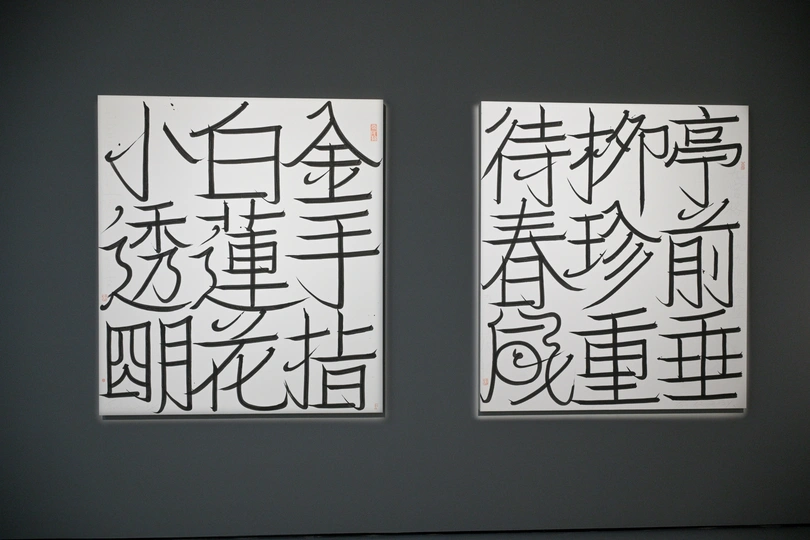 亭前垂
柳珍重
待春風
金手指
白蓮花
小透朙